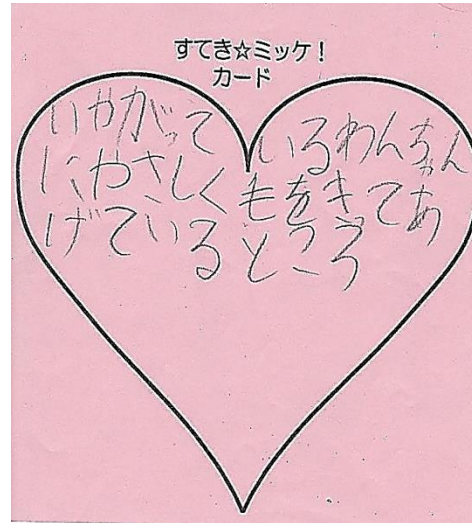 すてき☆ミッケ！
カード
いやがって いるわんちゃん
にやさしくもをきてあ
げているところ